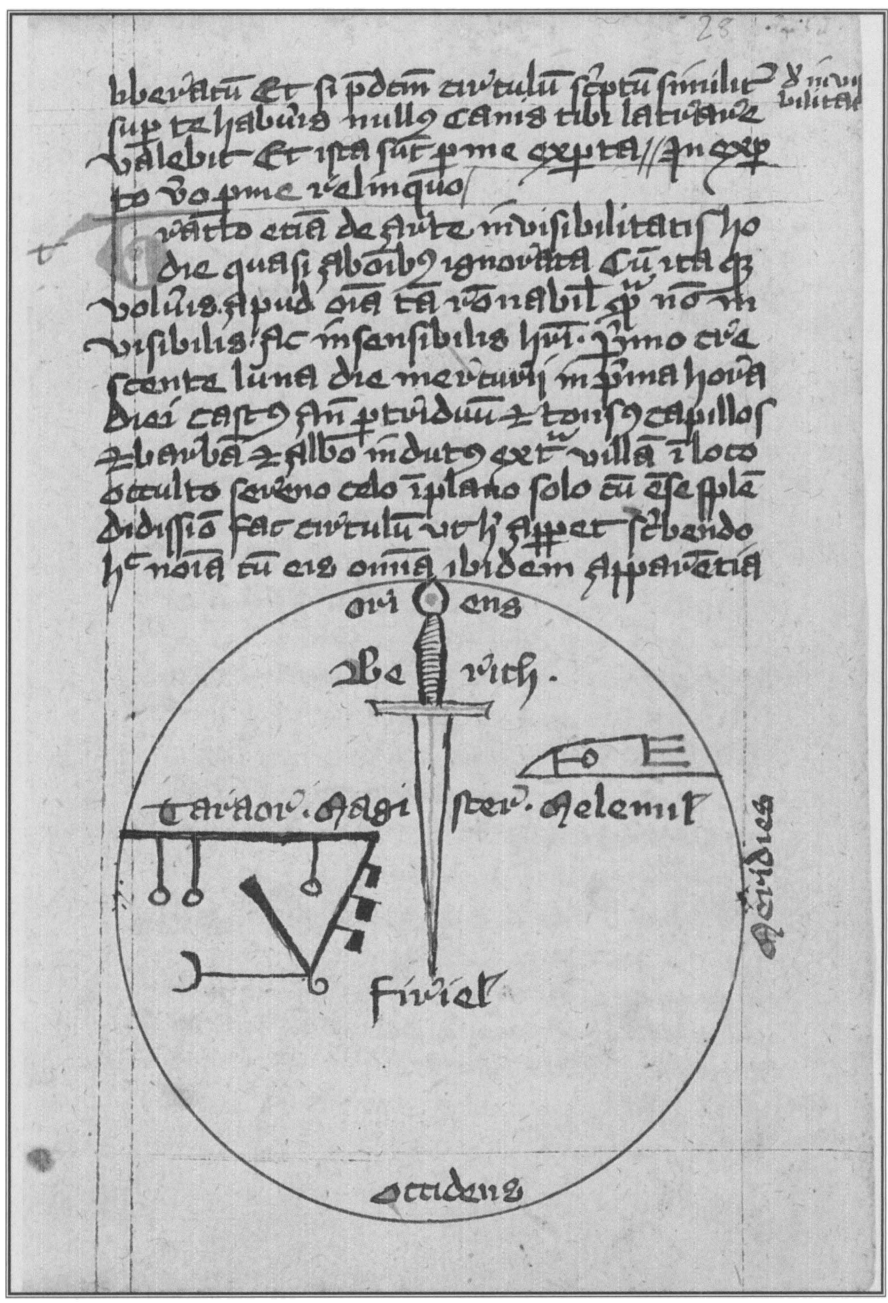 28
liberatū Et si p̄dcm̄ circulū sc̄ptū similit᷑
sup te habūis nullꝯ canis tibi latrare
valebit Et ista sūt ꝑ me exꝑta // In exꝑ
to v̄o ꝑ me relinquo
Tracto etiā de arte invisibilitatis ho
die quasi ab oībꝯ ignorata Cū ita qꝫ
volūis apud oīa tā rōnabil' qᷓ nō in
visibilis ac insensibilis hr̄i. pͥmo cre
scente luna die mercurii in pͥma hora
diei castꝯ an̄ ꝑ triduū ⁊ tonsꝯ capillos
⁊ barbā ⁊ albo indutꝯ extᷓ villā ī loco
occulto sereno celo ī plano solo cū ēse splē
didissīo fac circulū vt hͥ apparet scͥbendo
hͨ noīa cū eis omīa ibidem apparētia
d' invisi
bilitat
oriens
Berich.
Taraor. Magister. Melemil
Firiel
Meridies
occidens